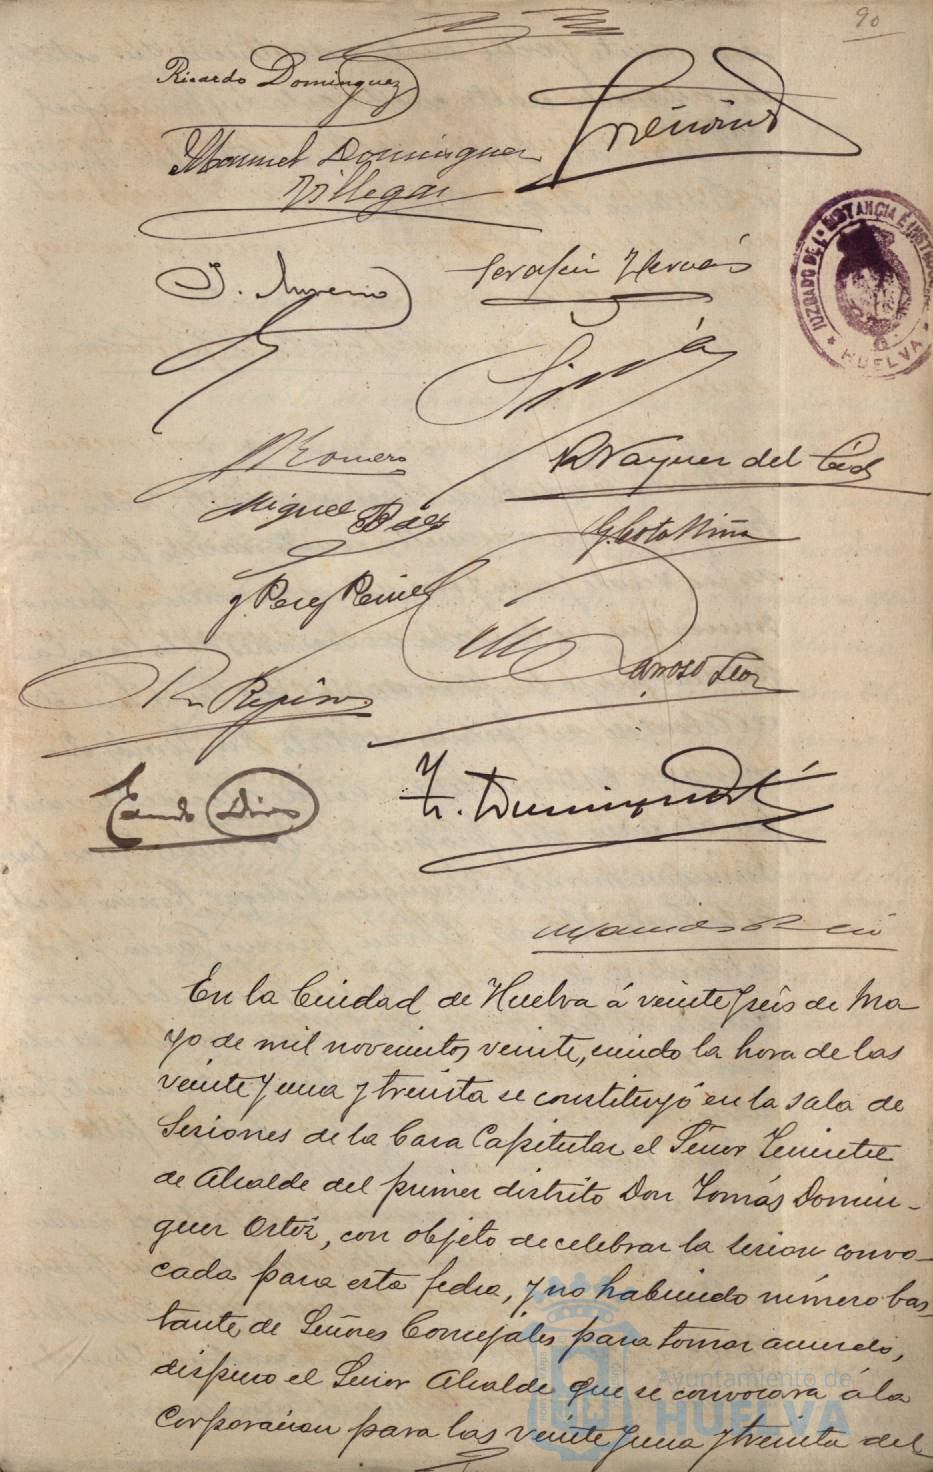 90
Ricardo Dominguez
Manuel Dominguez
Villegas
J. Moreno
Serafin
JUZGADO DE 1ª INSTANCIA É INSTRUCCION
* HUELVA *
Romero
Vazquez del Cid
Miguel Báez
Coto Niña
J Perez
Barroso Leon
Domínguez
En la Ciudad de Huelva á veinte y seis de Ma
yo de mil novecientos veinte, siendo la hora de las
veinte y una y treinta se constituyó en la sala de
Sesiones de la Casa Capitular el Señor Teniente
de Alcalde del primer distrito Don Tomás Domin-
guez Ortiz, con objeto de celebrar la sesion convo-
cada para esta fecha, y no habiendo número bas-
tante de Señores Concejales para tomar acuerdo,
dispuso el Señor Alcalde que se convocara á la
Corporacion para las veinte y una y treinta del
Ayuntamiento de
HUELVA